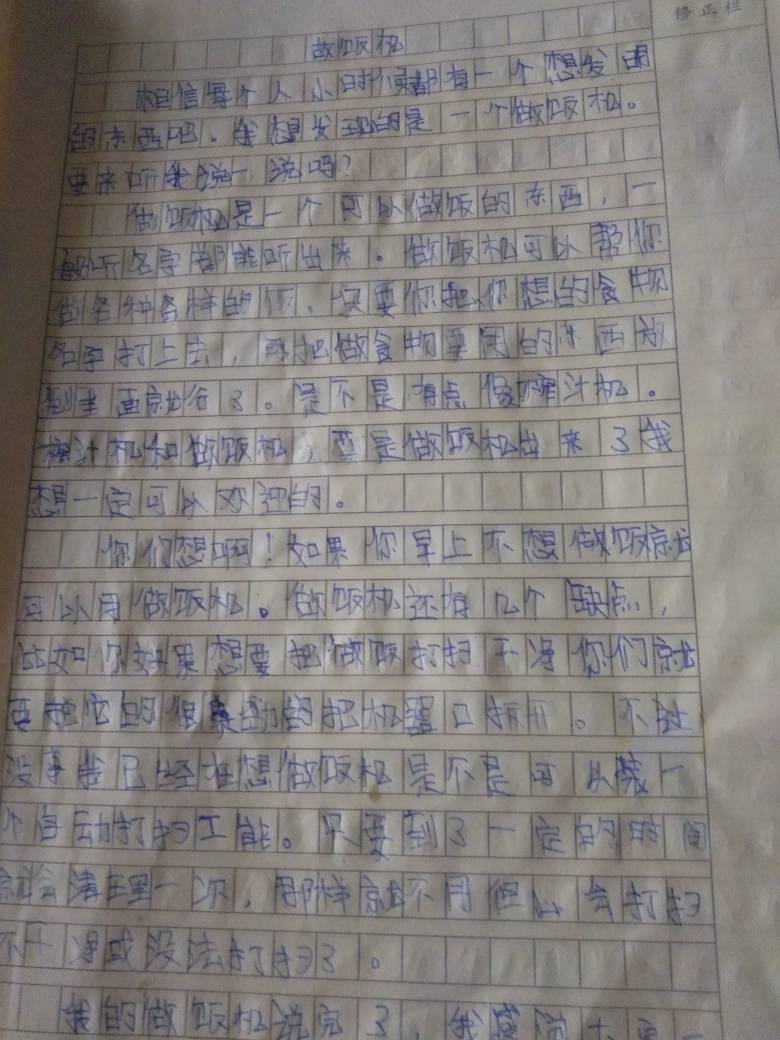 修正栏
做饭机
相信每个人小时候都有一个想发明
的东西吧。我想发现的是一个做饭机。
要来听我说一说吗?
做饭机是一个可以做饭的东西,一
般听名字都能听出来。做饭机可以帮你
做各种各样的饭。只要你把你想的食物
名字打上去,再把做食物要用的东西放
到里面就行了。是不是有点像榨汁机。
榨汁机和做饭机,要是做饭机出来了我
想一定可以欢迎的。
你们想啊!如果你早上不想做饭就
可以用做饭机。做饭机还有几个缺点,
比如你如果想要把做饭打扫干净你们就
要把它的很 的把机器口拆开。不过
没事我已经在想做饭机是不是可以装一
个自动打扫工能。只要到了一定的时间
就会清理一次,那样就不用担心会打扫
不干净或没法打扫了。
我的做饭机说完了,我